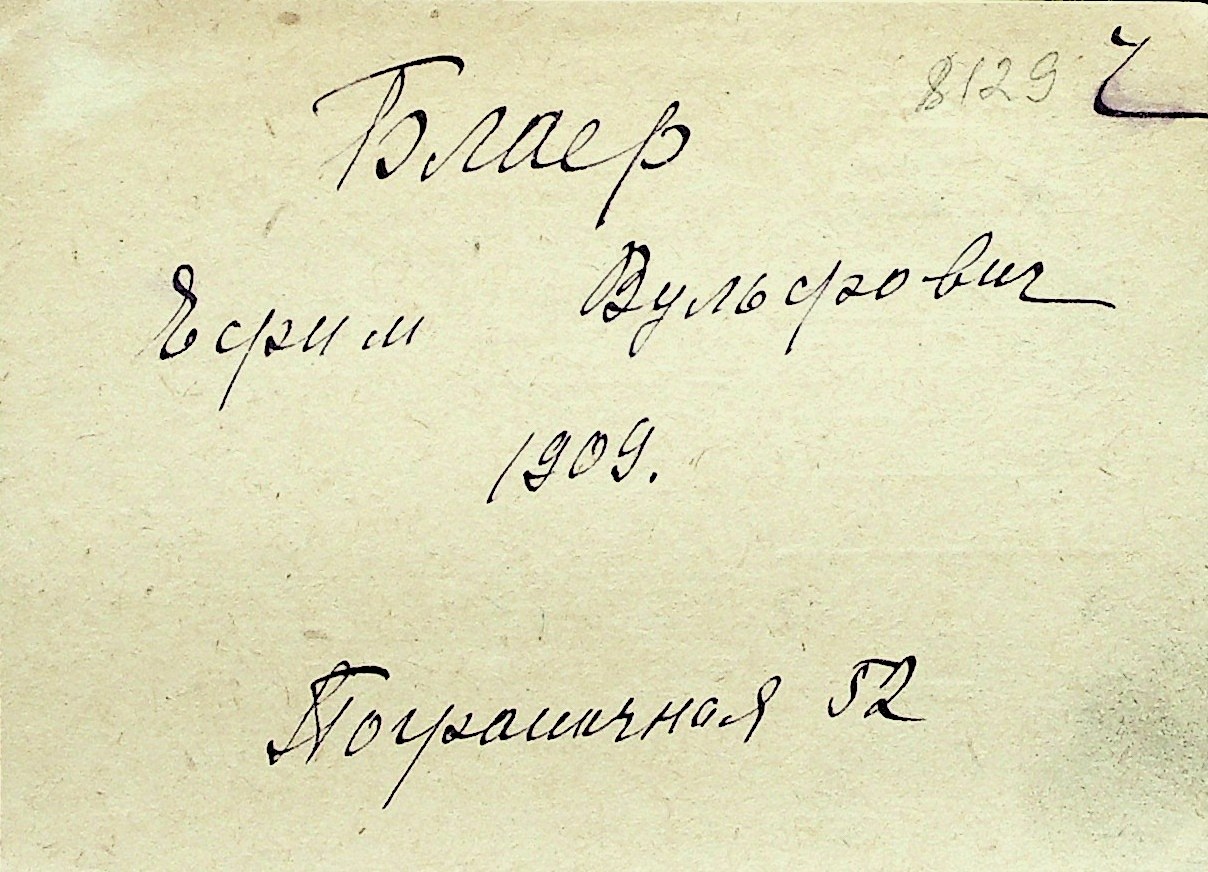 8129
Блаер
Ефим Вульфович
1909.
Пограничная 52